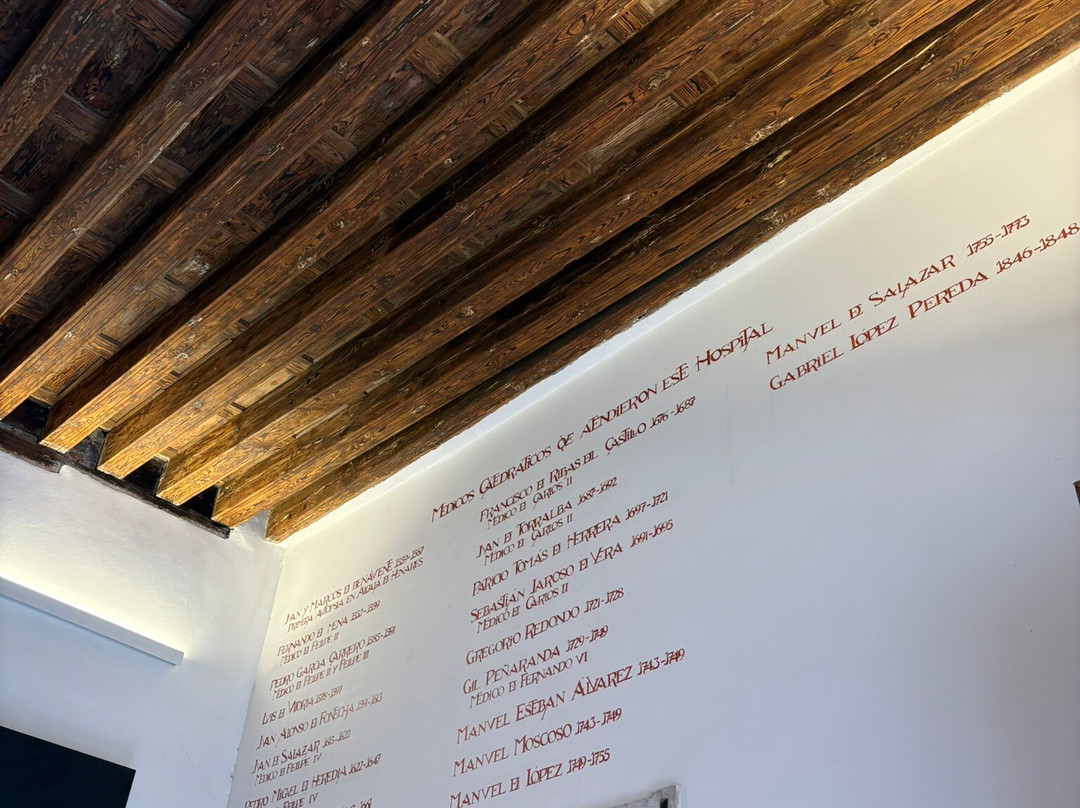 MÉDICOS CATEDRÁTICOS QUE ATENDIERON ESTE HOSPITAL
JUAN Y MARCOS DE BENAVENTE
PRIMERA AUTOPSIA EN ALCALÁ DE HENARES
FERNANDO DE MENA
MÉDICO DE FELIPE II
PEDRO GARCÍA CARRERO
MÉDICO DE FELIPE II Y FELIPE III
LUIS DE VITORIA
JUAN ALONSO DE FONTECHA
JUAN DE SALAZAR 1615-1622
MÉDICO DE FELIPE IV
PEDRO MIGUEL DE HEREDIA 1622-1647
FELIPE IV
FRANCISCO DE RIBAS DEL CASTILLO 1676-1687
MÉDICO DE CARLOS II
JUAN DE TORRALBA 1687-1692
MÉDICO DE CARLOS II
PATRICIO TOMÁS DE HERRERA 1697-1721
SEBASTIÁN TAROSO DE VERA 1691-1695
MÉDICO DE CARLOS II
GREGORIO REDONDO 1721-1728
GIL PEÑARANDA 1729-1749
MÉDICO DE FERNANDO VI
MANUEL ESTEBAN ÁLVAREZ 1743-1749
MANUEL MOSCOSO 1743-1749
MANUEL DE LÓPEZ 1749-1755
MANUEL DE SALAZAR 1755-1773
GABRIEL LÓPEZ PEREDA 1846-1848